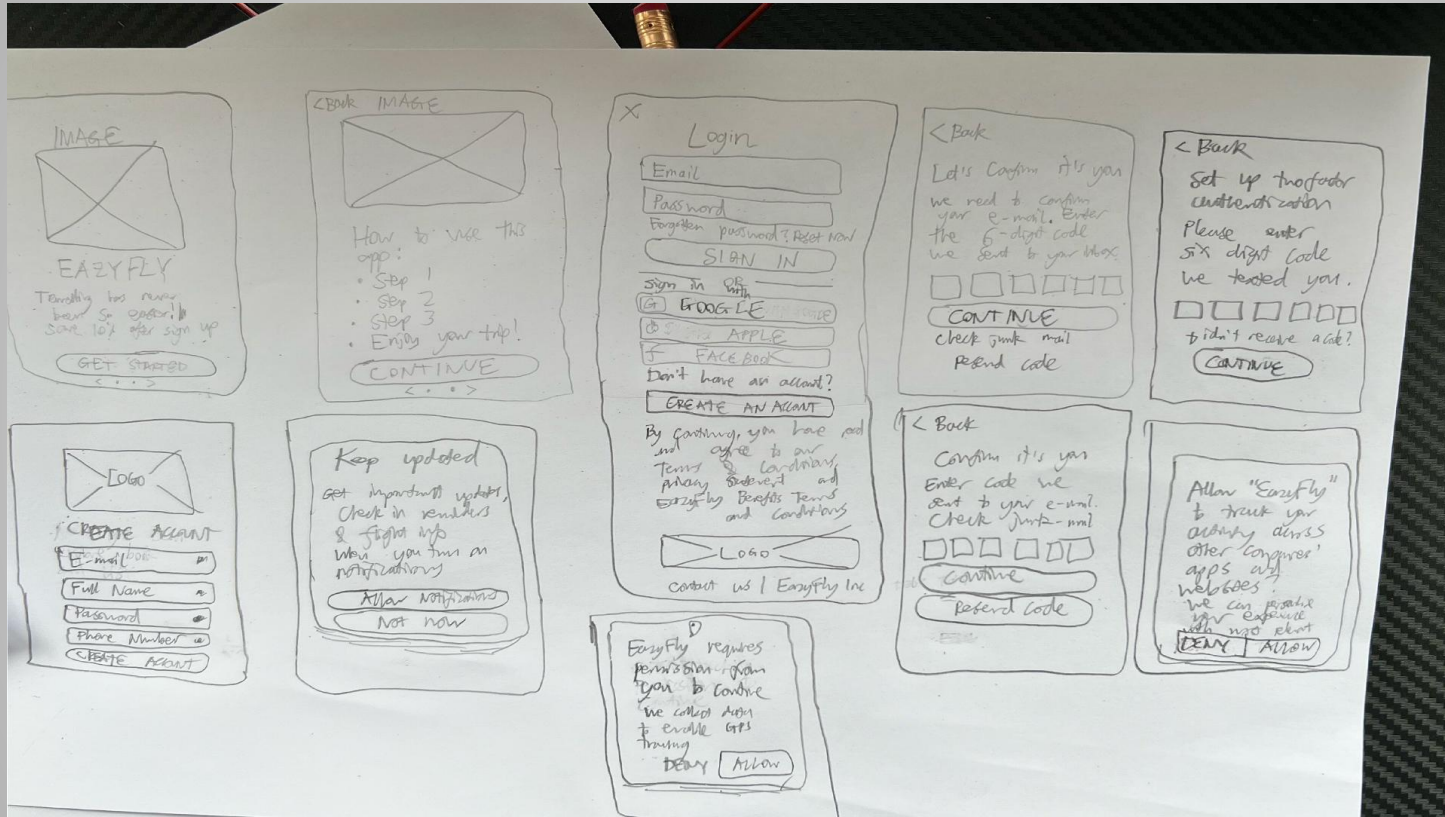 IMAGE
EAZYFLY
Travelling has never
been so easier!
Save 10% after sign up
GET STARTED
< • • >
< Back IMAGE
How to use this
app:
• Step 1
• Step 2
• Step 3
• Enjoy your trip!
CONTINUE
< • • >
X
Login
Email
Password
Forgotten password? Reset Now
SIGN IN
sign in with
G GOOGLE
APPLE
f FACEBOOK
Don't have an account?
CREATE AN ACCONT
By continuing, you have read
and agree to our
Terms & Conditions,
privacy statement and
EazyFly Benefits Terms
and conditions
LOGO
contact us | EazyFly Inc
< Back
Let's Confirm it's you
we need to confirm
your e-mail. Enter
the 6-digit code
we sent to your inbox.
CONTINUE
check junk mail
Resend code
< Back
Set up two factor
authentication
Please enter
six digit code
we texted you.
Didn't receive a code?
CONTINUE
LOGO
CREATE ACCOUNT
E-mail
Full Name
Password
Phone Number
CREATE ACCONT
Keep updated
Get important updates,
Check in reminders
& flight info
when you turn on
notifications
Allow Notifications
Not now
EazyFly requires
permission from
you to continue
We collect data
to enable GPS
DENY ALLOW
< Back
Confirm it's you
Enter code we
sent to your e-mail.
Check junk-mail
Continue
Resend code
Allow "EazyFly"
to track your
activity across
other companies'
apps and
websites?
we can
your experience
with most
DENY ALLOW